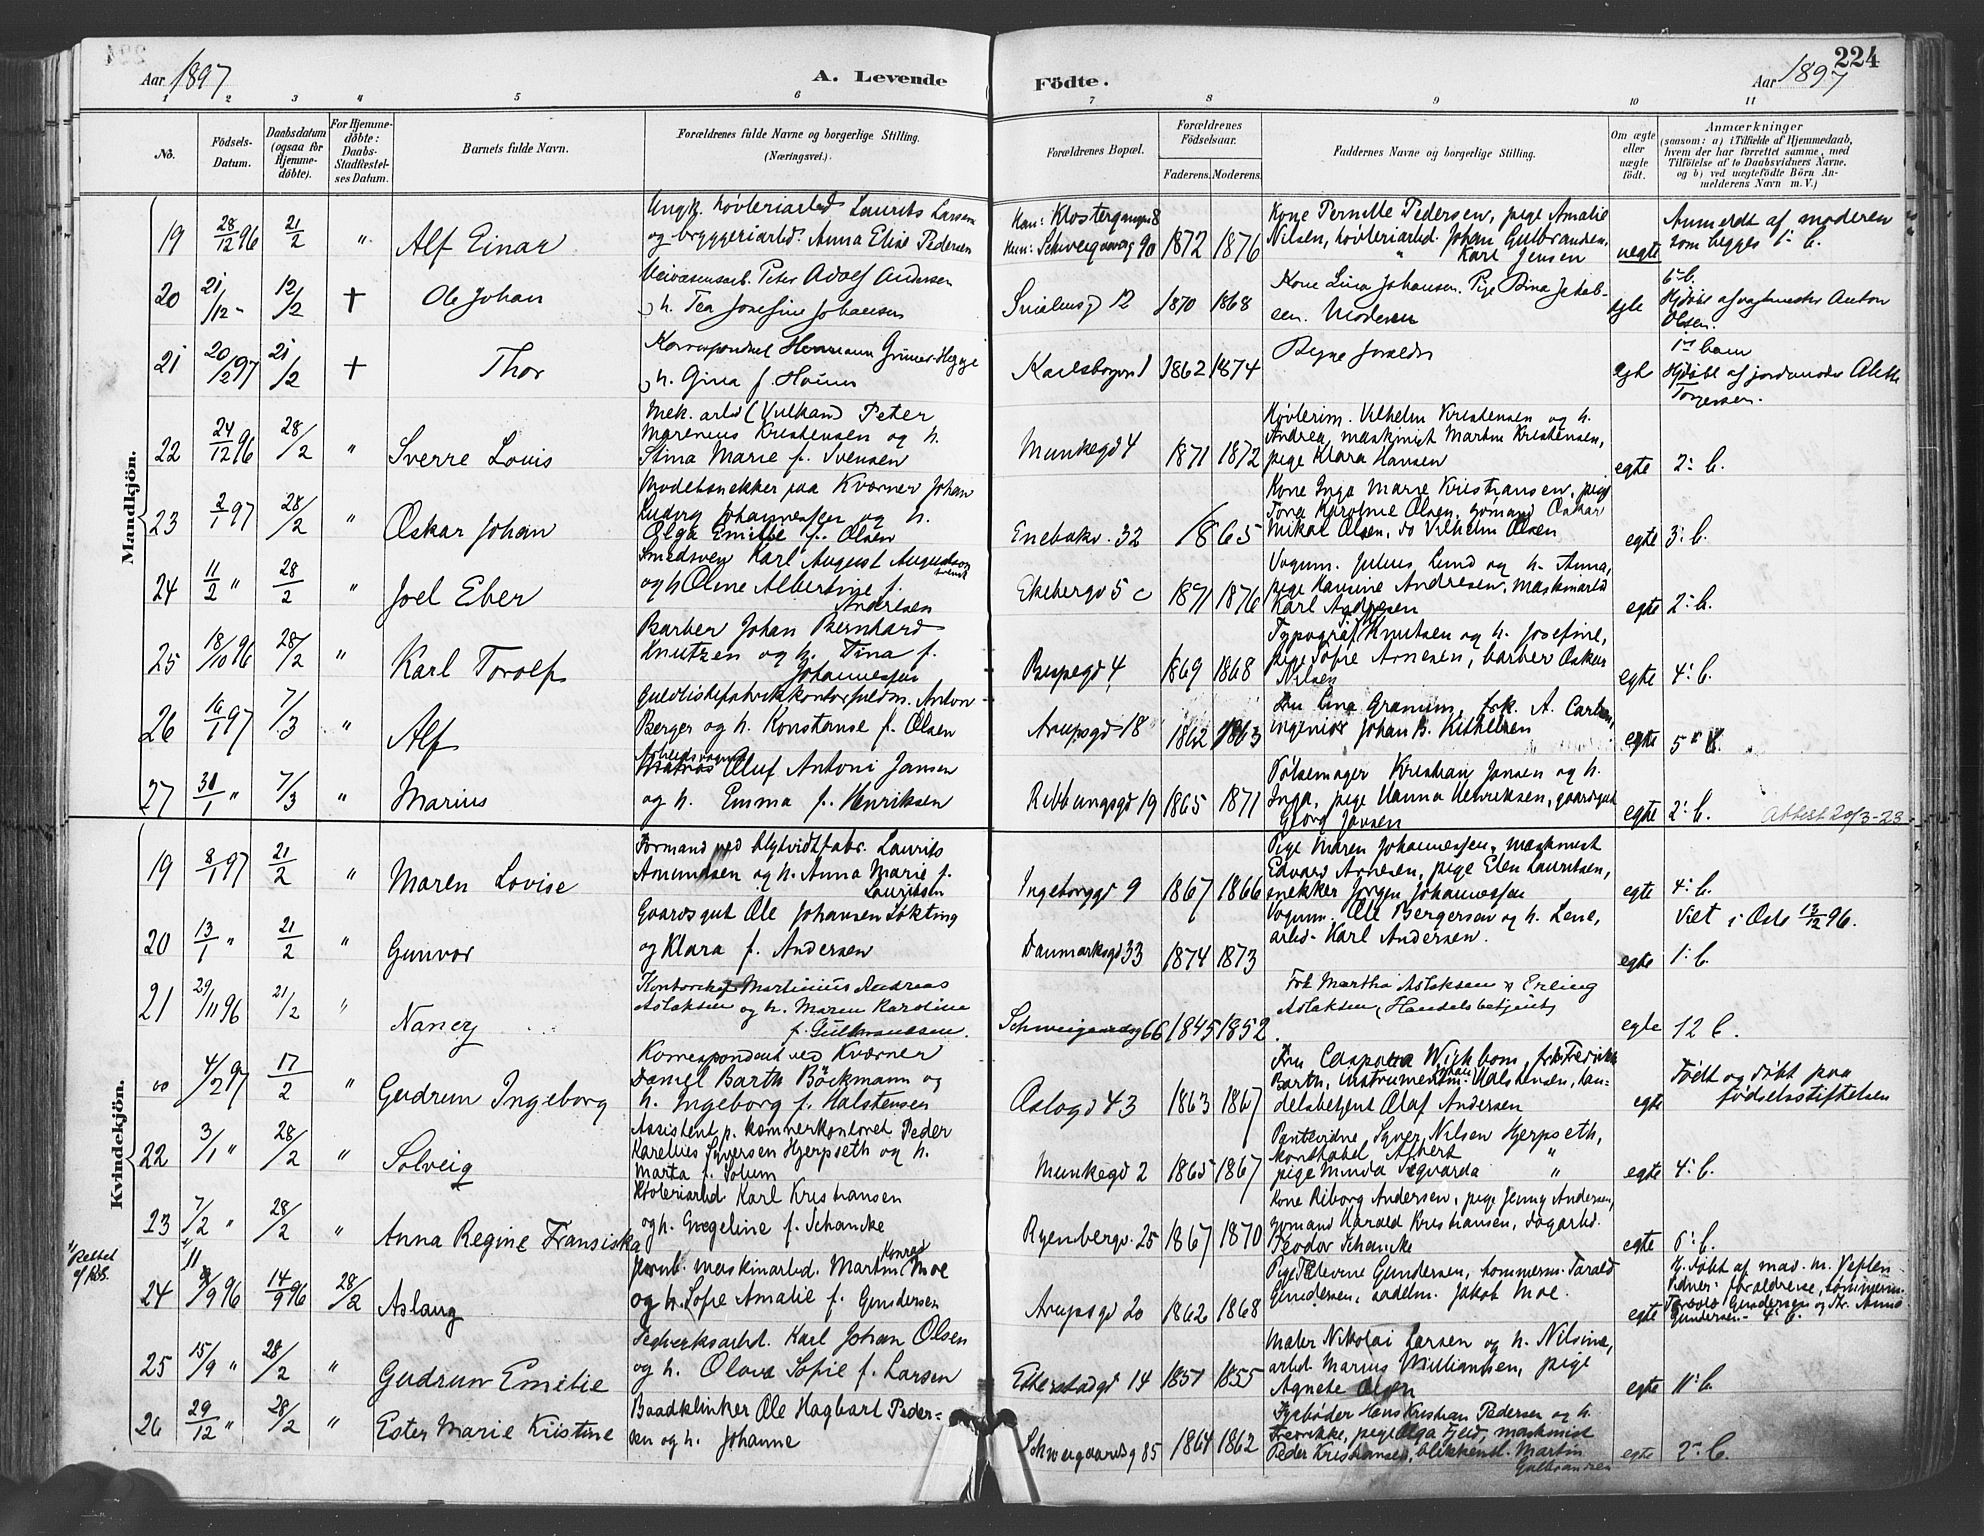 224
Aar 1897
A. Levende Födte.
Aar 1897
1 2 3 4 5 6 7 8 9 10 11
No.
Födsels-Datum.
Daabsdatum (ogsaa for Hjemme-döbte).
For Hjemme-döbte: Daabs-Stadfæstel-ses Datum.
Barnets fulde Navn.
Forældrenes fulde Navne og borgerlige Stilling.
(Næringsvei.)
Forældrenes Bopæl.
Forældrenes Födselsaar.
Faderens. Moderens.
Faddernes Navne og borgerlige Stilling.
Om ægte eller uægte födt.
Anmærkninger
(saasom: a) i Tilfælde af Hjemmedaab, hvem der har forrettet samme, med Tilföielse af to Daabsvidners Navne, og b) ved uægtefödte Börn An-melderens Navn m. V.)
Mandkjön.
19 28/12 96 21/2 " Alf Einar
Ungk. høvleriarbd Laurits Larsen
og bryggeriarbd. Anna Elise Pedersen
Han: Klostergangen 8
Hun: Schweigaardsg 90 1872 1876
Kone Pernille Pedersen, pige Amalie
Nilsen, høvleriarbd. Johan Gulbrandsen,
" Karl Jensen
uegte
Anmeldt af moderen
som begges 1: b.
20 21/12 " 12/2 + Ole Johan
Peter Adolf Andersen
h. Tea Josefine Johansen
Smalensgd 12 1870 1868
Kone Lina Johansen. Pige Dina Jakob-
sen. Moderen
egte
6: b.
Hjdøbt af vagtmester Anton
Olsen.
21 20/2 97 21/2 + Thor
Korrespondent Hermann Grimer-Hegge
h. Gina f. Hoium
Karlsborgv 1 1862 1874
Begge foreldre
egte
1ste barn
Hjdøbt af jordmoder Alette
Torgersen.
22 24/12 96 28/2 " Sverre Louis
Mek. arbd (Vulkan) Peter
Marenius Kristensen og h.
Stina Marie f. Svensen
Munkegd 4 1871 1872
Høvlerim. Vilhelm Kristensen og h.
Andrea, maskinist Martin Kristensen,
pige Klara Hansen
egte 2: b.
23 2/1 97 28/2 " Oskar Johan
Modelsnekker paa Kværner Johan
Ludvig Johannessen og h.
Olga Emilie f. Olsen
Enebakv. 32 1865
Kone Inga Marie Kristiansen, pige
Tora Karoline Olsen, sømand Oskar
Nikol Olsen, do Vilhelm Olsen
egte 3: b.
24 11/2 " 28/2 " Joel Eber
Smedsven Karl August Augustson
svensk
og h Oline Albertine f.
Andresen
Ekebergv 5 c 1871 1876
Vognm. Julius Lund og h. Anna,
pige Hansine Andresen, maskinarbd
Karl Andresen
egte 2: b.
25 18/10 96 28/2 " Karl Torolf
Barber Johan Bernhard
Knutzen og h. Tina f.
Johannessen
Bispegd 4 1869 1868
Typograf Knutsen og h. Josefine,
pige Sofie Arnesen, barber Oskar
Nilsen
egte 4: b.
26 16/1 97 7/3 " Alf
Guldlistefabrikkontorfuldm. Anton
Berger og h. Konstanse f. Olsen
Arupsgd 18 1862 1863
Fru Lina Granum, frk. A. Carlsen,
ingeniør Johan B. Kittelsen
egte 5: b.
27 31/1 " 7/3 " Marius
Arbeidsvognm. Oluf Antoni Jansen
og h. Emma f. Henriksen
Ribbungsgd 19 1865 1871
Pølsemager Kristian Jansen og h.
Inga, pige Hanna Henriksen, gaardsgut
Georg Jansen
egte 2: b. Attest 20/3-23
Kvindekjön.
19 8/1 97 21/2 " Maren Lovise
Formand ved blyhvidtfabr. Laurits
Amundsen og h. Anna Marie f.
Lauritsen
Ingeborggd 9 1867 1866
Pige Maren Johannessen, maskinist
Edvard Arnesen, pige Elen Lauritsen,
snekker Jørgen Johannessen
egte 4: b.
20 13/1 " 21/2 " Gunvor
Gaardsgut Ole Johansen Løkting
og Klara f. Andersen
Danmarksgd 33 1874 1873
Vognm. Ole Bergersen og h. Lene,
arbd. Karl Andersen.
egte
Viet i Oslo 13/12 96.
1: b.
21 29/11 96 21/2 " Nancy
Kontorchef Martinius Andreas
Aslaksen og h. Maren Karoline
f. Gulbrandsen.
Schweigaardsg 66 1845 1852
Frk Martha Aslaksen & Erling
Aslaksen, Handelsbetjent
egte 12 b.
4/2 97 17/2 " Gudrun Ingeborg
Korrespondent ved Kværner
Daniel Barth Böckmann og
h. Ingeborg f. Halstensen
Oslogd 43 1863 1867
Fru Caspara Wichbom, frk Fredrikke
Barth, instrumentm. Halstensen, han-
delsbetjent Olaf Andersen
egte
Født og døbt paa
fødselsstiftelsen
22 3/1 " 28/2 " Solveig
Assistent p. kemnerkontoret Peder
Karelius Syversen Hjerpseth og h.
Marta f. Solum
Munkegd 2 1865 1867
Pantevidne Syver Nilsen Hjerpseth,
konstabel Albert "
pige Minda Sigvarda "
egte 4: b.
23 7/2 " 28/2 " Anna Regine Fransiska
Høvleriarbd Karl Kristiansen
og h. Gregeline f. Schancke
Ryenbergv. 25 1867 1870
Kone Riborg Andersen, pige Jenny Andersen,
sømand Harald Kristiansen, dagarbd.
Teodor Schancke
egte 6: b.
" Rettet
24 11/9 96 14/9 96 28/2 Aslaug
Jernb. maskinarbd. Martin Konrad Moe
og h. Sofie Amalie f. Gundersen
Arupsgd 20 1862 1868
Pige Tolevine Gundersen, tømmerm. Tarald
Gundersen, sadelm. Jakob Moe.
egte
Hj. døbt af mad. M. Veflen
Vidner: foreldrene, tømmerm.
Tarald Gundersen og fr. Anna
Gundersen - 4: b.
25 15/9 " 28/2 " Gudrun Emilie
Teglverksarbd. Karl Johan Olsen
og h. Olava Sofie f. Larsen
Etterstadgd 14 1851 1855
Maler Nikolai Larsen og h. Nilsine,
arbd. Marius Williamsen, pige
Agnete Olsen
egte 11: b.
26 29/12 " 28/2 " Ester Marie Kristine
Baadklinker Ole Hagbart Peder-
sen og h. Johanne
Schweigaardsg 85 1864 1862
Fyrbøder Hans Kristian Pedersen og h.
Fredrikke, pige Olga Fjeld, maskinist
Peder Kristiansen, blikkensl. Martin
Gulbrandsen
egte 2: b.